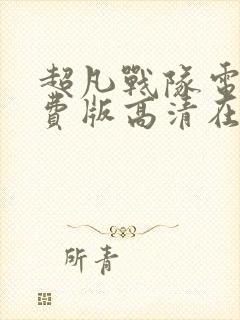 超凡戰隊電
費版高清在
所青